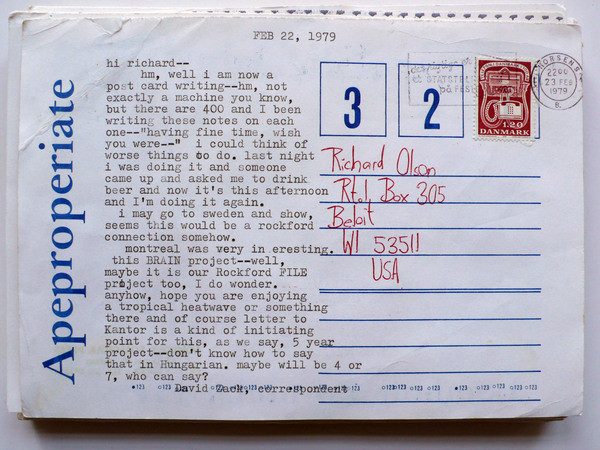 FEB 22, 1979
hi richard--
hm, well i am now a
post card writing--hm, not
exactly a machine you know,
but there are 400 and I been
writing these notes on each
one--"having fine time, wish
you were--" i could think of
worse things to do. last night
i was doing it and someone
came up and asked me to drink
beer and now it's this afternoon
and I'm doing it again.
i may go to sweden and show,
seems this would be a rockford
connection somehow.
montreal was very in eresting.
this BRAIN project--well,
maybe it is our Rockford FILE
project too, I do wonder.
anyhow, hope you are enjoying
a tropical heatwave or something
there and of course letter to
Kantor is a kind of initiating
point for this, as we say, 5 year
project--don't know how to say
that in Hungarian. maybe will be 4 or
7, who can say?
David Zack, correspondent
Apeproperiate
3 2
Richard Olson
Rt.1, Box 305
Beloit
WI 53511
USA
HORSENS
23 FEB
1979
1.20
DANMARK
123 123 123 123 123 123 123 123 123